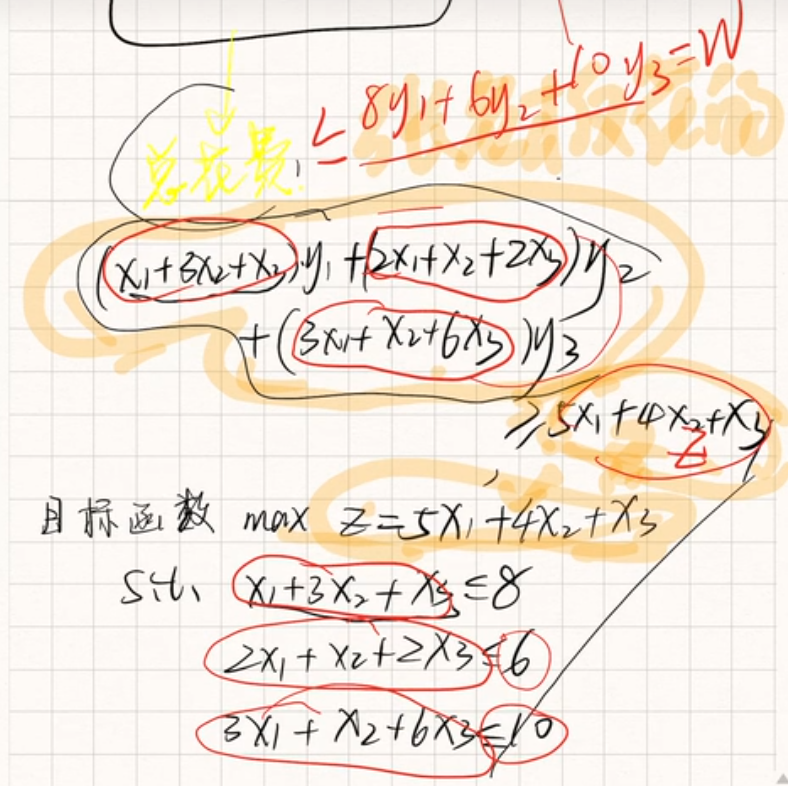 ≤ 8y₁+6y₂+10y₃=W
总花费
(x₁+3x₂+x₃)y₁+(2x₁+x₂+2x₃)y₂
+(3x₁+x₂+6x₃)y₃
≥5x₁+4x₂+x₃
Z
目标函数 max Z=5x₁+4x₂+x₃
s.t. x₁+3x₂+x₃≤8
2x₁+x₂+2x₃≤6
3x₁+x₂+6x₃≤10